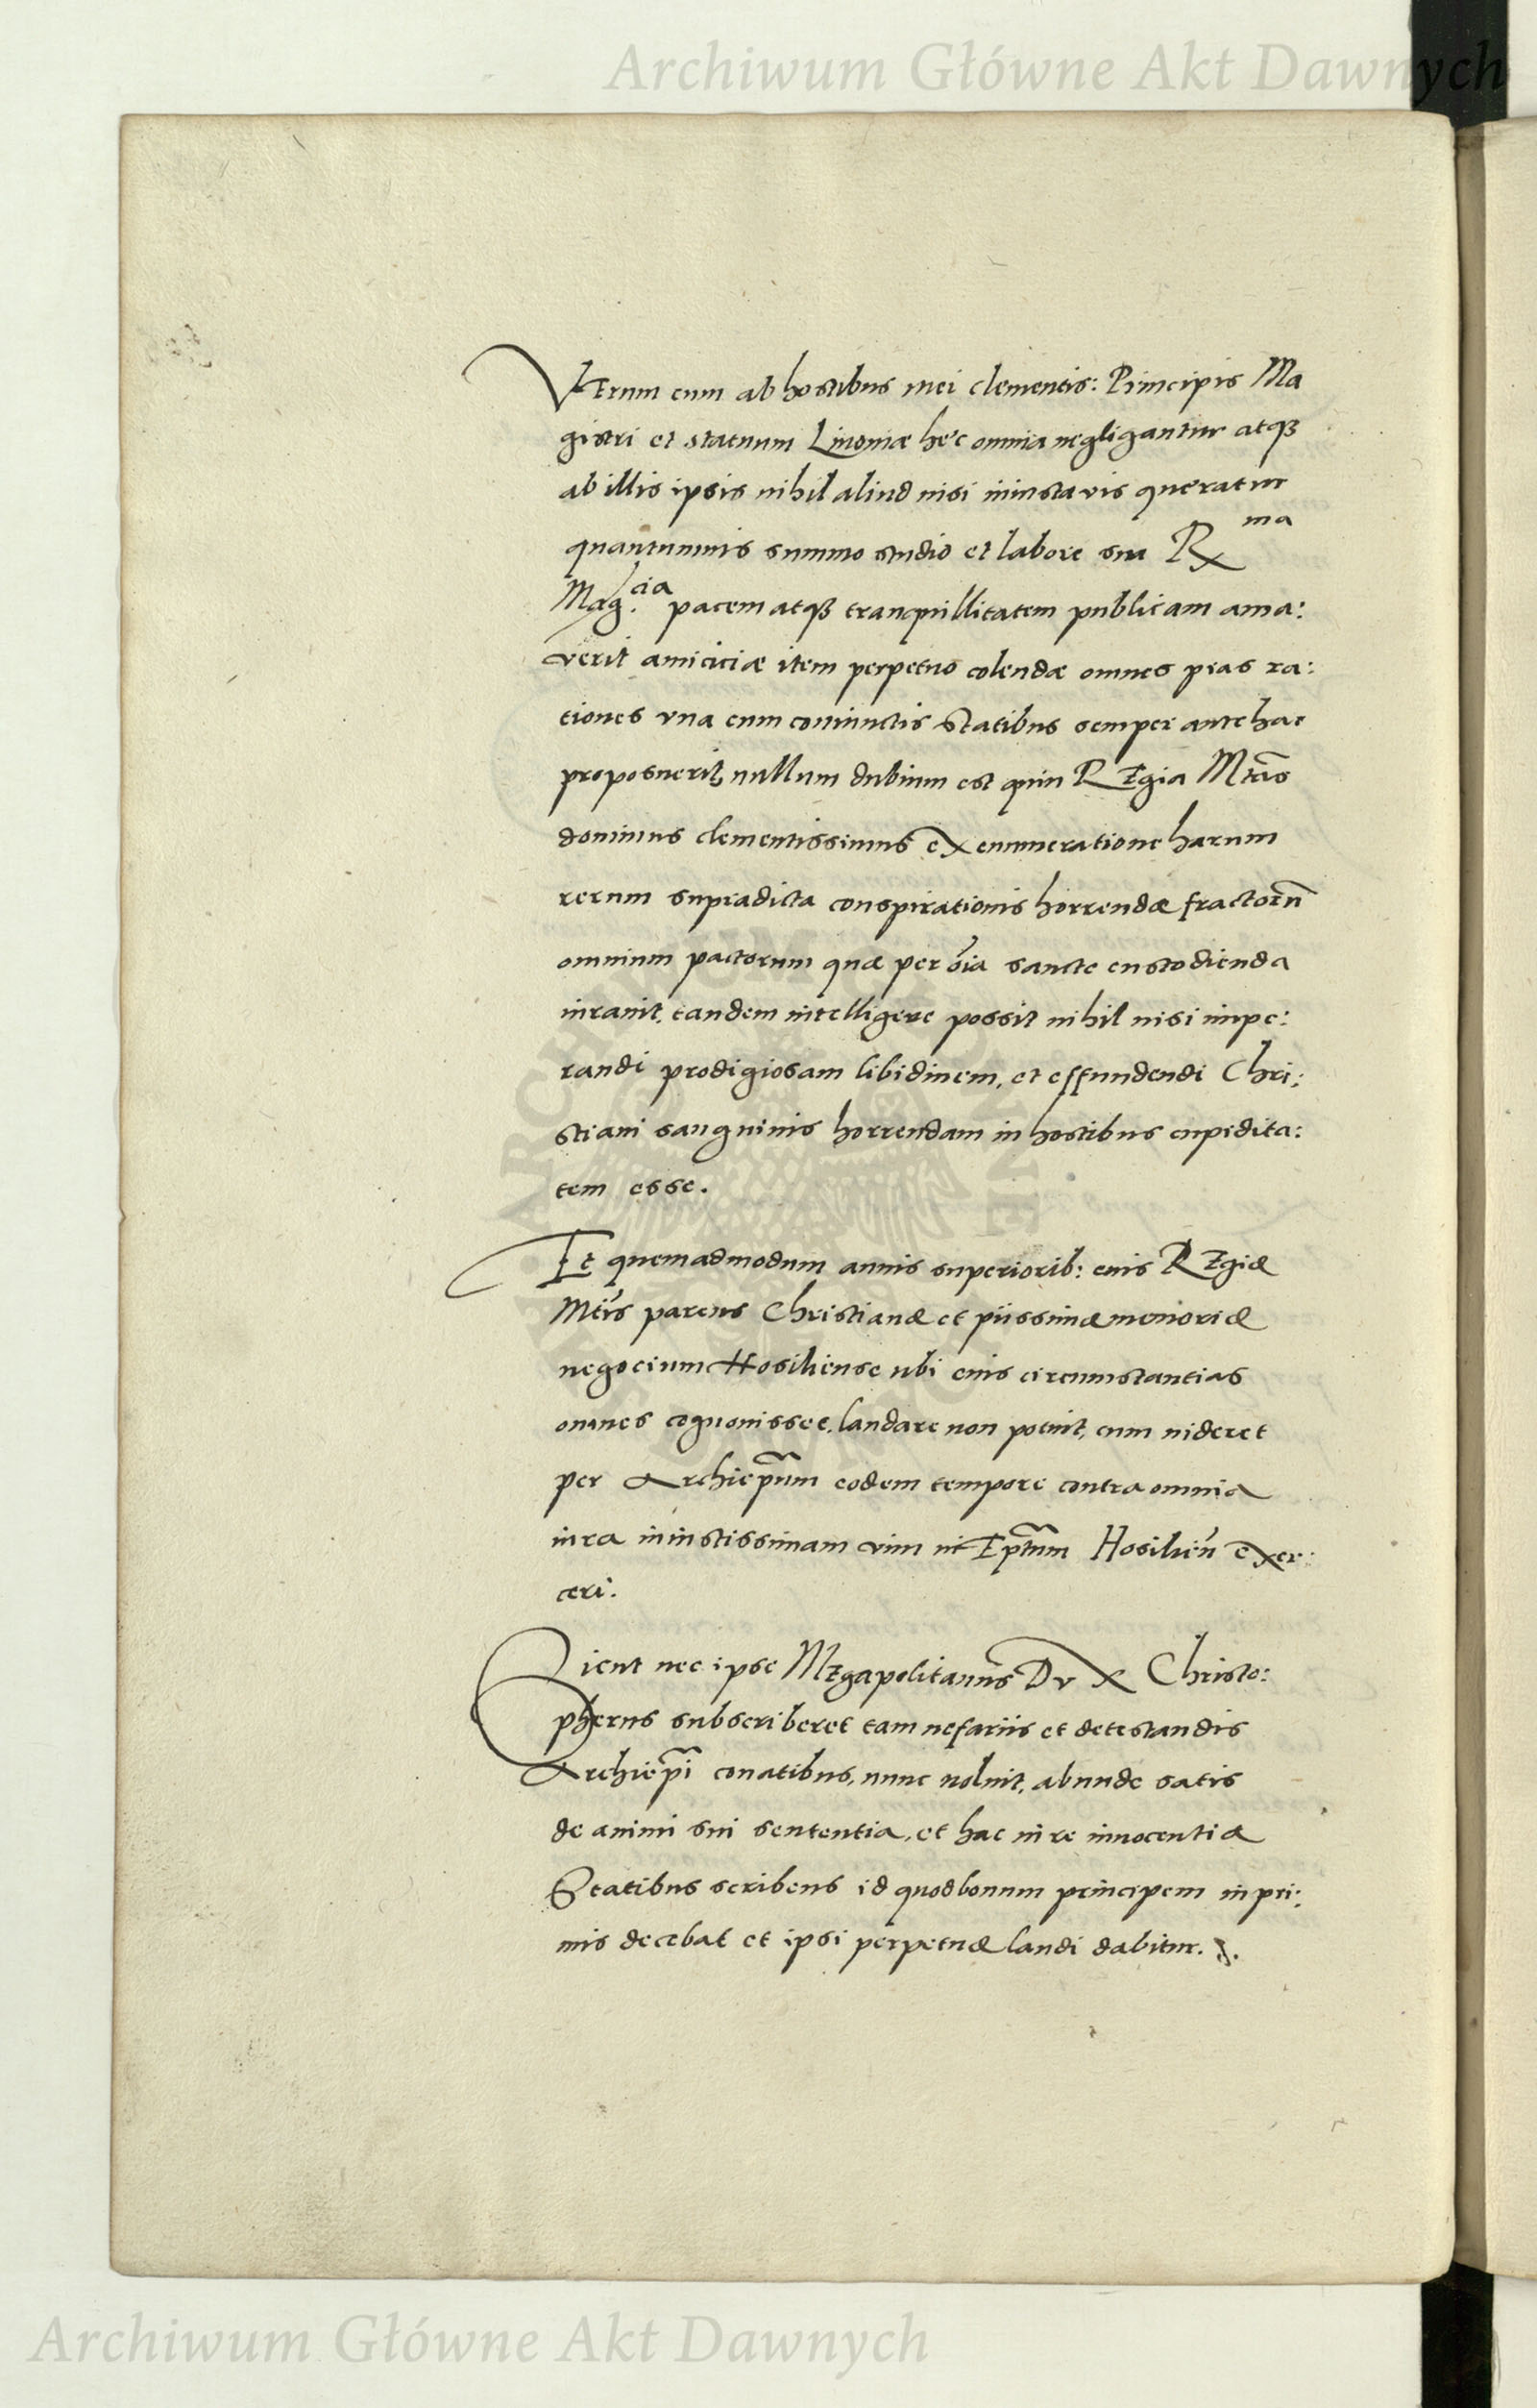 Archiwum Główne Akt Dawnych
VErum cum ab hostibus mei clementis: Principis Ma
gistri et statuum Liuoniæ hęc omnia negligantur atq3
ab illis ipsis nihil aliud nisi iniusta vis queratur
quantumuis summo studio et labore sua R ma
Mag.cia pacem atq3 tranquillitatem publicam ama:
verit amiciciæ item perpetuo colendæ omnes pias ra:
tiones vna cum coniunctis statibus semper antehac
proposuerit, nullum dubium est quin REgia Mtas
dominus clementissimus ex enumeratione harum
rerum supradicta conspirationis horrendæ fractorū
omnium pactorum quæ per oīa sancte custodienda
iurauit, tandem intelligere possit nihil nisi impe:
randi prodigiosam libidinem, et effundendi Chri:
stiani sanguinis horrendam in hostibus cupidita:
tem esse.
Et quemadmodum annis superiorib: eius REgiæ
Mtis parens Christianæ et piissimæ memoriæ
negocium Hosiliense ubi eius circumstantias
omnes cognouisset, laudare non potuit, cum uideret
per Archiepūm eodem tempore contra omnia
iura iniustissimam vim in Eptum Hosilien̄ exer:
ceri.
Sicut nec ipse MEgapolitanus Dux Christo:
pherus subscriberet tam nefariis et detestandis
Archiepī conatibus, nunc uoluit, abunde satis
de animi sui sententia, et hac in re innocentia
Statibus scribens id quod bonum principem inpri:
mis decebat et ipsi perpetuæ laudi dabitur.
Archiwum Główne Akt Dawnych